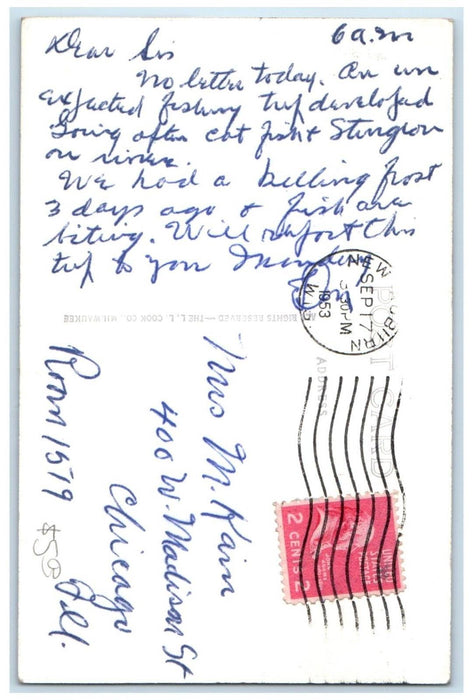 6 a.m
Dear Sis
No letter today. An un
expected fishing trip developed
Going after cat fish & Sturgeon
on river.
We had a killing frost
3 days ago & fish are
biting. Will report this
trip to you Monday
ALL RIGHTS RESERVED — THE L. L. COOK CO., MILWAUKEE
POST CARD
ADDRESS
NEW AUBURN
SEP 17
3:30 PM
1953
WIS.
UNITED
STATES
POSTAGE
2 CENTS 2
Mrs M. Kain
400 W. Madison St
Chicago
Room 1519 Ill.
$50